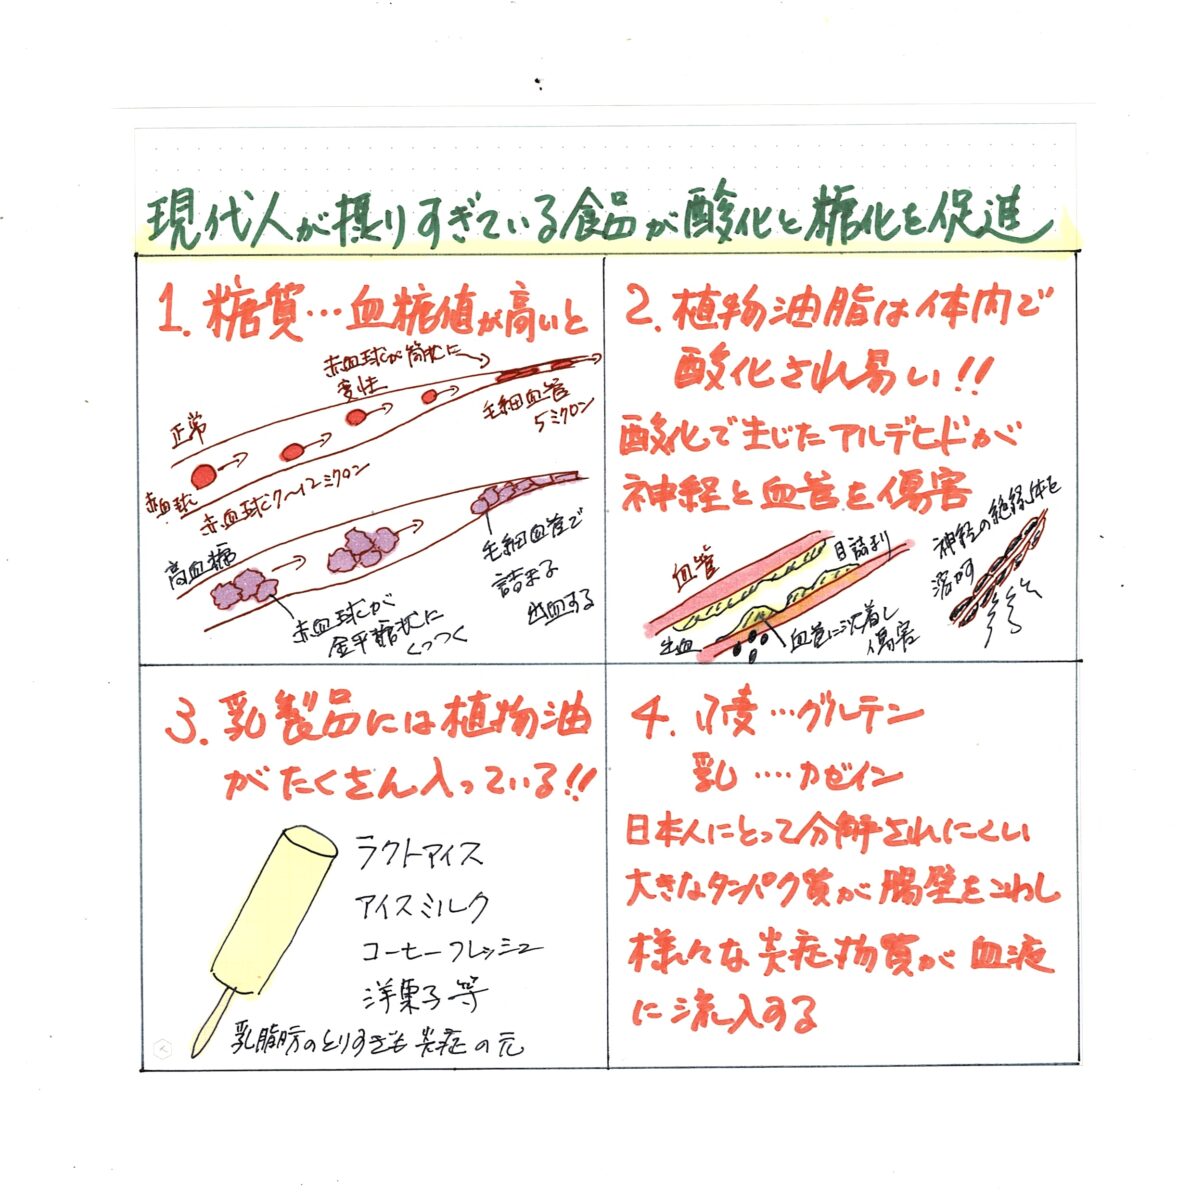 現代人が摂りすぎている食品が酸化と糖化を促進
1. 糖質…血糖値が高いと
赤血球が筒状に
変性
正常
毛細血管
5ミクロン
赤血球
赤血球7〜12ミクロン
高血糖
赤血球が
金平糖状に
くっつく
毛細血管で
詰まる
出血する
2. 植物油脂は体内で
酸化され易い!!
酸化で生じたアルデヒドが
神経と血管を傷害
血管
目詰まり
出血
血管に沈着し
傷害
神経の絶縁体を
溶かす
3. 乳製品には植物油
がたくさん入っている!!
ラクトアイス
アイスミルク
コーヒーフレッシュ
洋菓子等
乳脂肪のとりすぎも炎症の元
4. 小麦…グルテン
乳‥‥カゼイン
日本人にとって分解されにくい
大きなタンパク質が腸壁をこわし
様々な炎症物質が血液
に流入する